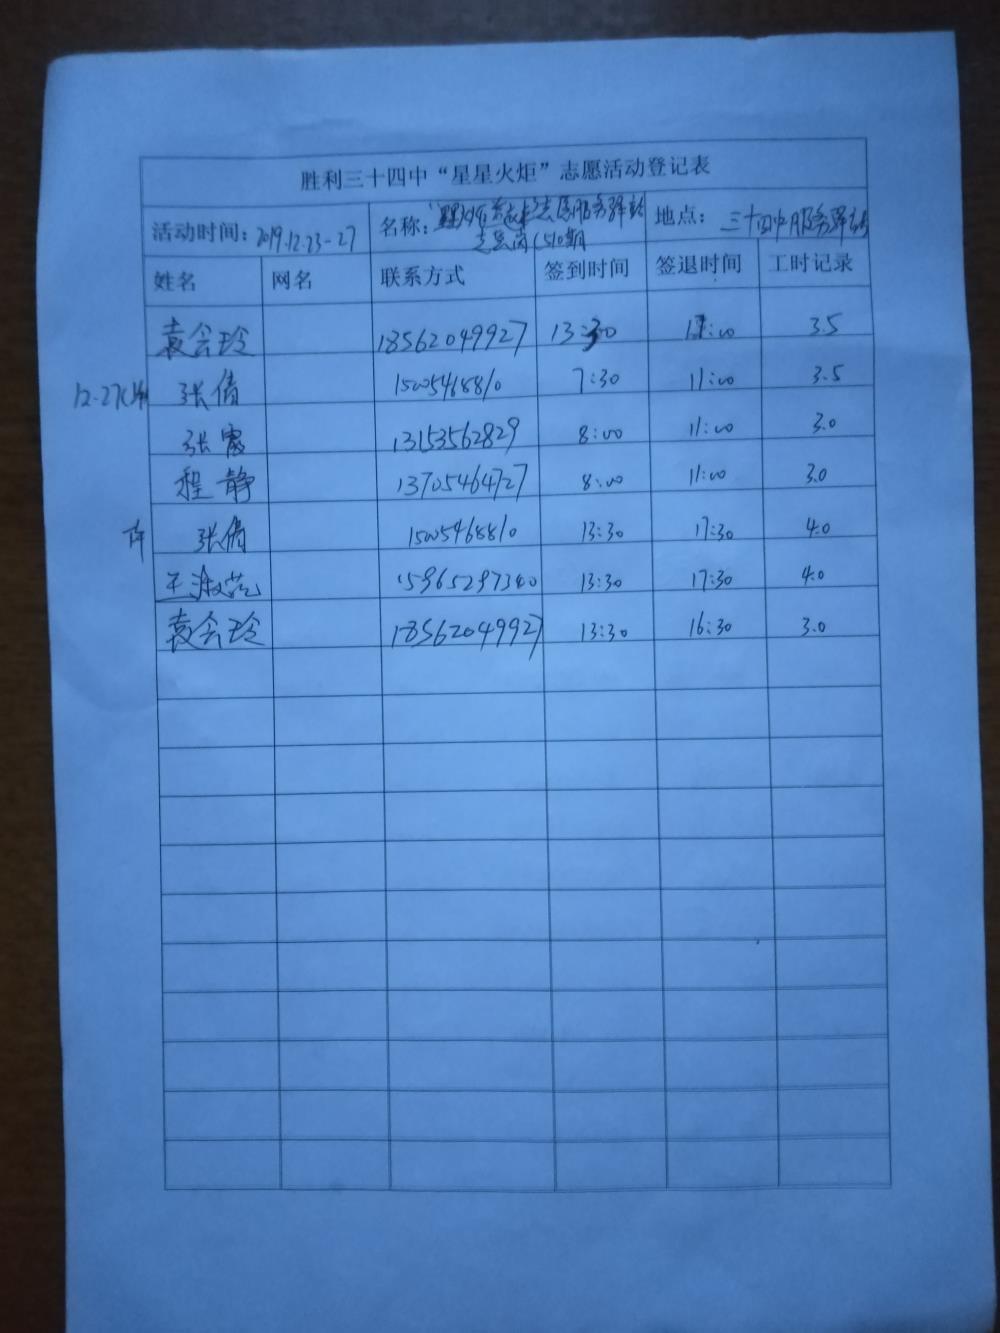 胜利三十四中“星星火炬”志愿活动登记表
活动时间：2019.12.23-27 名称： 志愿服务驿站 地点：三十四中服务驿站
志愿岗（510期
姓名 网名 联系方式 签到时间 签退时间 工时记录
袁会玲 18562049927 13:30 17:00 3.5
12.27 张倩 15005468810 7:30 11:00 3.5
张霞 13153562829 8:00 11:00 3.0
程静 13705464727 8:00 11:00 3.0
张倩 15005468810 13:30 17:30 4.0
王淑范 15965297340 13:30 17:30 4.0
袁会玲 18562049927 13:30 16:30 3.0